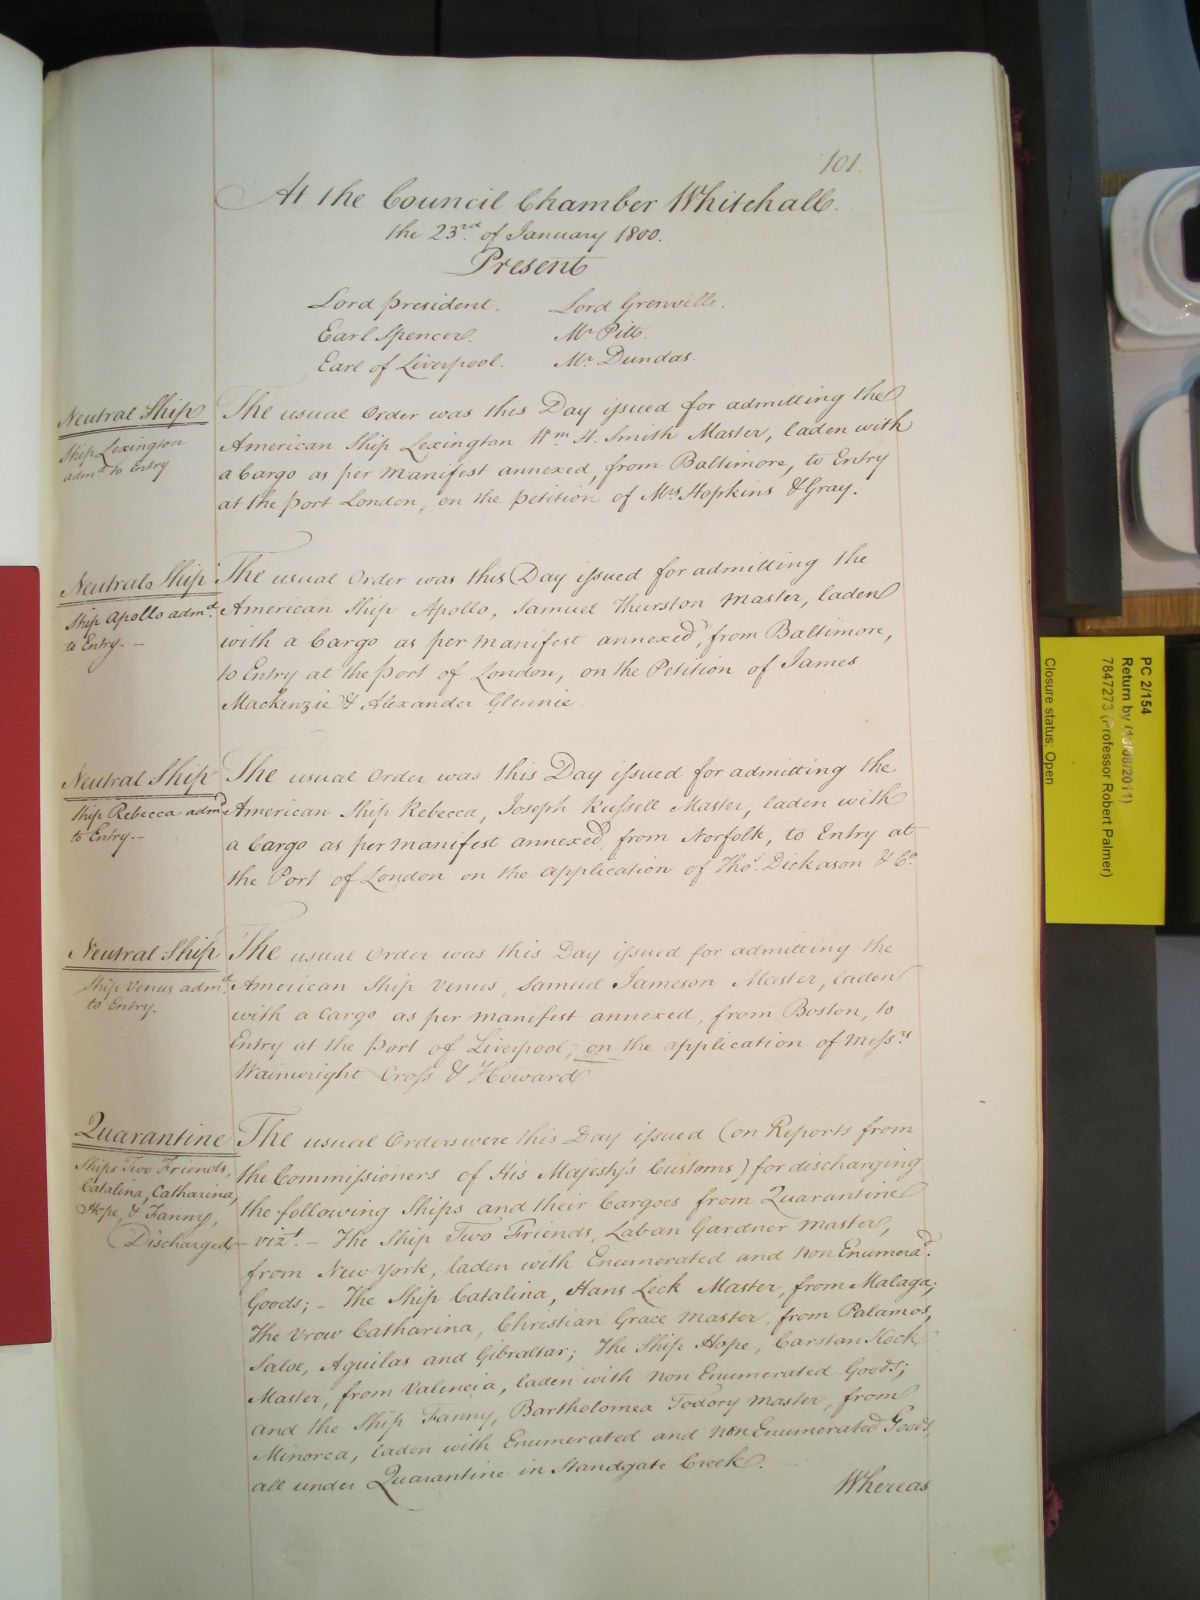 101.
At the Council Chamber Whitehall.
the 23rd. of January 1800.
Present
Lord President. Lord Grenville.
Earl Spencer. Mr Pitt.
Earl of Liverpool. Mr. Dundas.
Neutral Ship
Ship Lexington
admd. to Entry
The usual Order was this Day issued for admitting the
American Ship Lexington Wm. H. Smith Master, laden with
a Cargo as per Manifest annexed, from Baltimore, to Entry
at the Port London, on the Petition of Mrs Hopkins & Gray.
Neutral Ship
Ship Apollo admd.
to Entry. -
The usual Order was this Day issued for admitting the
American Ship Apollo, Samuel Thurston Master, laden
with a Cargo as per Manifest annexed, from Baltimore,
to Entry at the Port of London, on the Petition of James
Mackenzie & Alexander Glennie
Neutral Ship
Ship Rebecca admd
to Entry. -
The usual Order was this Day issued for admitting the
American Ship Rebecca, Joseph Russell Master, laden with
a Cargo as per manifest annexed from Norfolk, to Entry at
the Port of London on the application of Thos. Dickason & Co.
Neutral Ship
Ship Venus admd.
to Entry.
The usual Order was this Day issued for admitting the
American Ship Venus, Samuel Jameson Master, laden
with a Cargo as per manifest annexed, from Boston, to
Entry at the Port of Liverpool, on the application of Messrs
Wainwright Cross & Howard
Quarantine
Ships Two Friends,
Catalina, Catharina,
Hope, & Fanny,
Discharged
The usual Orders were this Day issued (on Reports from
the Commissioners of His Majesty's Customs) for discharging
the following Ships and their Cargoes from Quarantine
vizt. - The Ship Two Friends, Laban Gardner Master,
from New York, laden with Enumerated and non Enumerad.
Goods; - The Ship Catalina, Hans Leck Master, from Malaga;
The Vrow Catharina, Christian Grace Master, from Palamos,
Saloe, Aguilas and Gibraltar; The Ship Hope, Carstan Kock
Master, from Valencia, laden with non Enumerated Goods;
and the Ship Fanny, Bartholomea Todory Master, from
Minorca, laden with Enumerated and non Enumerated Goods,
all under Quarantine in Standgate Creek.
Whereas
PC 2/154
Return by (13/08/2011)
7847273 (Professor Robert Palmer)
Closure status: Open